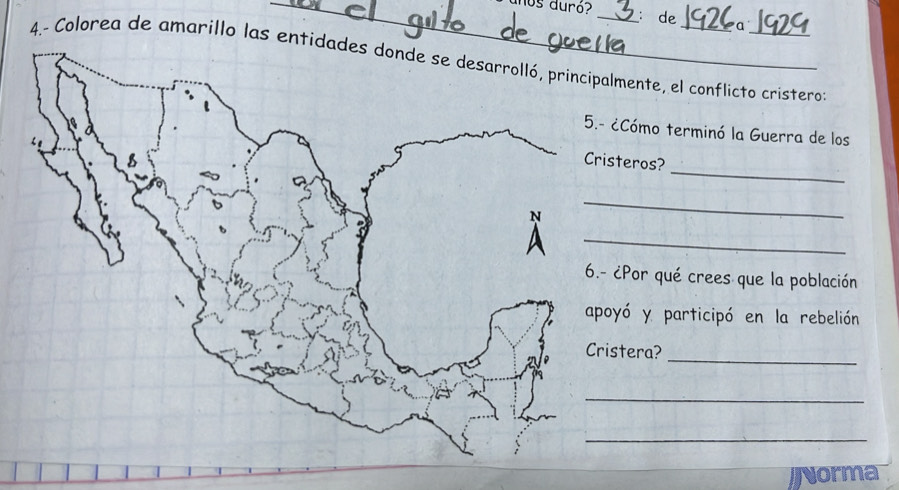 años duró? 3: de 1926 a 1929
el grito de guerra
4.- Colorea de amarillo las entidades donde se desarrolló, principalmente, el conflicto cristero:
5.- ¿Cómo terminó la Guerra de los
Cristeros?
N
6.- ¿Por qué crees que la población
apoyó y participó en la rebelión
Cristera?
Norma